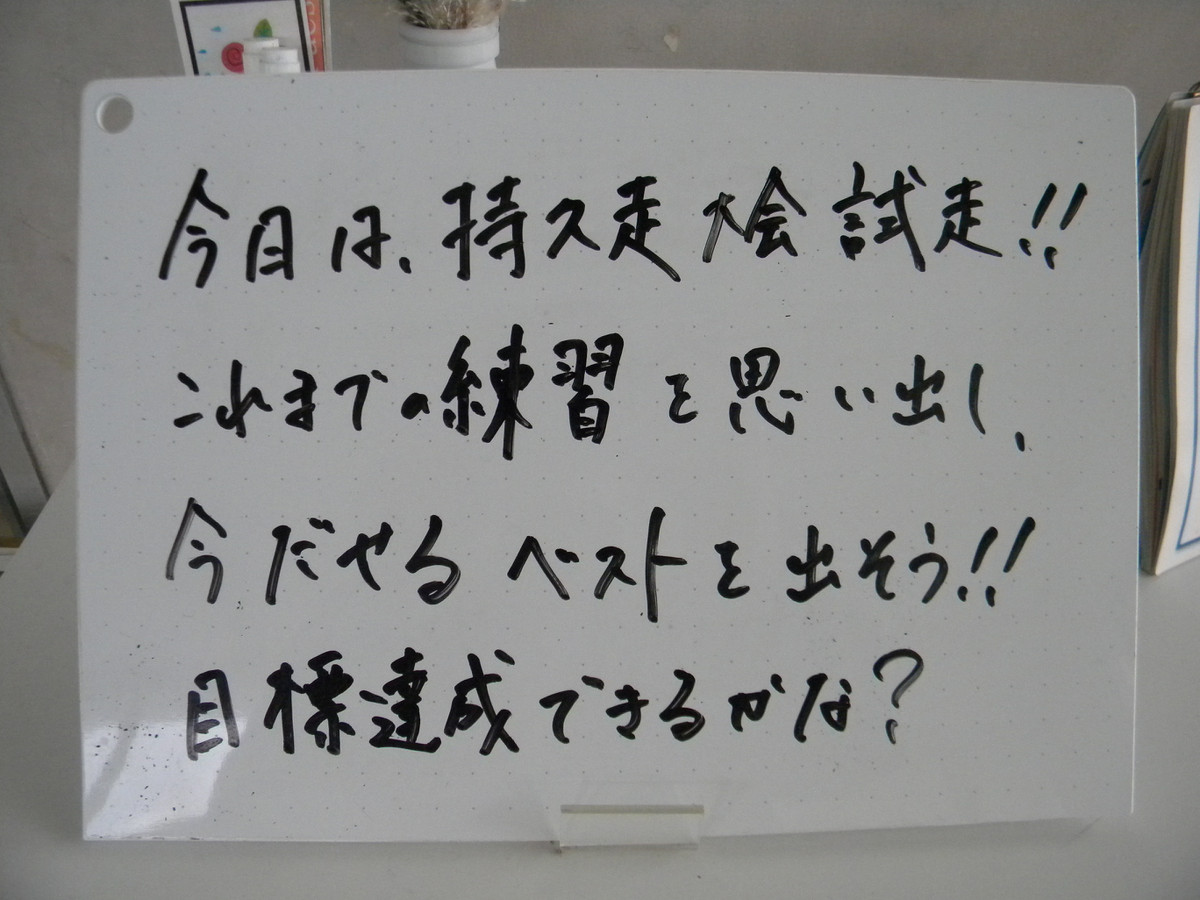 今日は、持久走大会試走!!
これまでの練習を思い出し、
今だせるベストを出そう!!
目標達成できるかな?